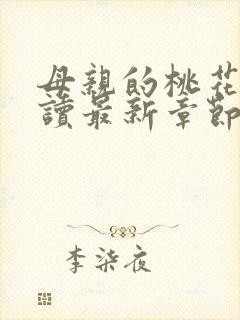 母親的桃花
讀最新章節
李柒夜